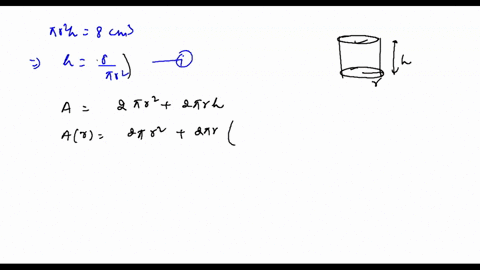 πr²h = 8 cm³
⇒ h = 8/πr² ) — ①
A = 2πr² + 2πrh
A(r) = 2πr² + 2πr (
h
r